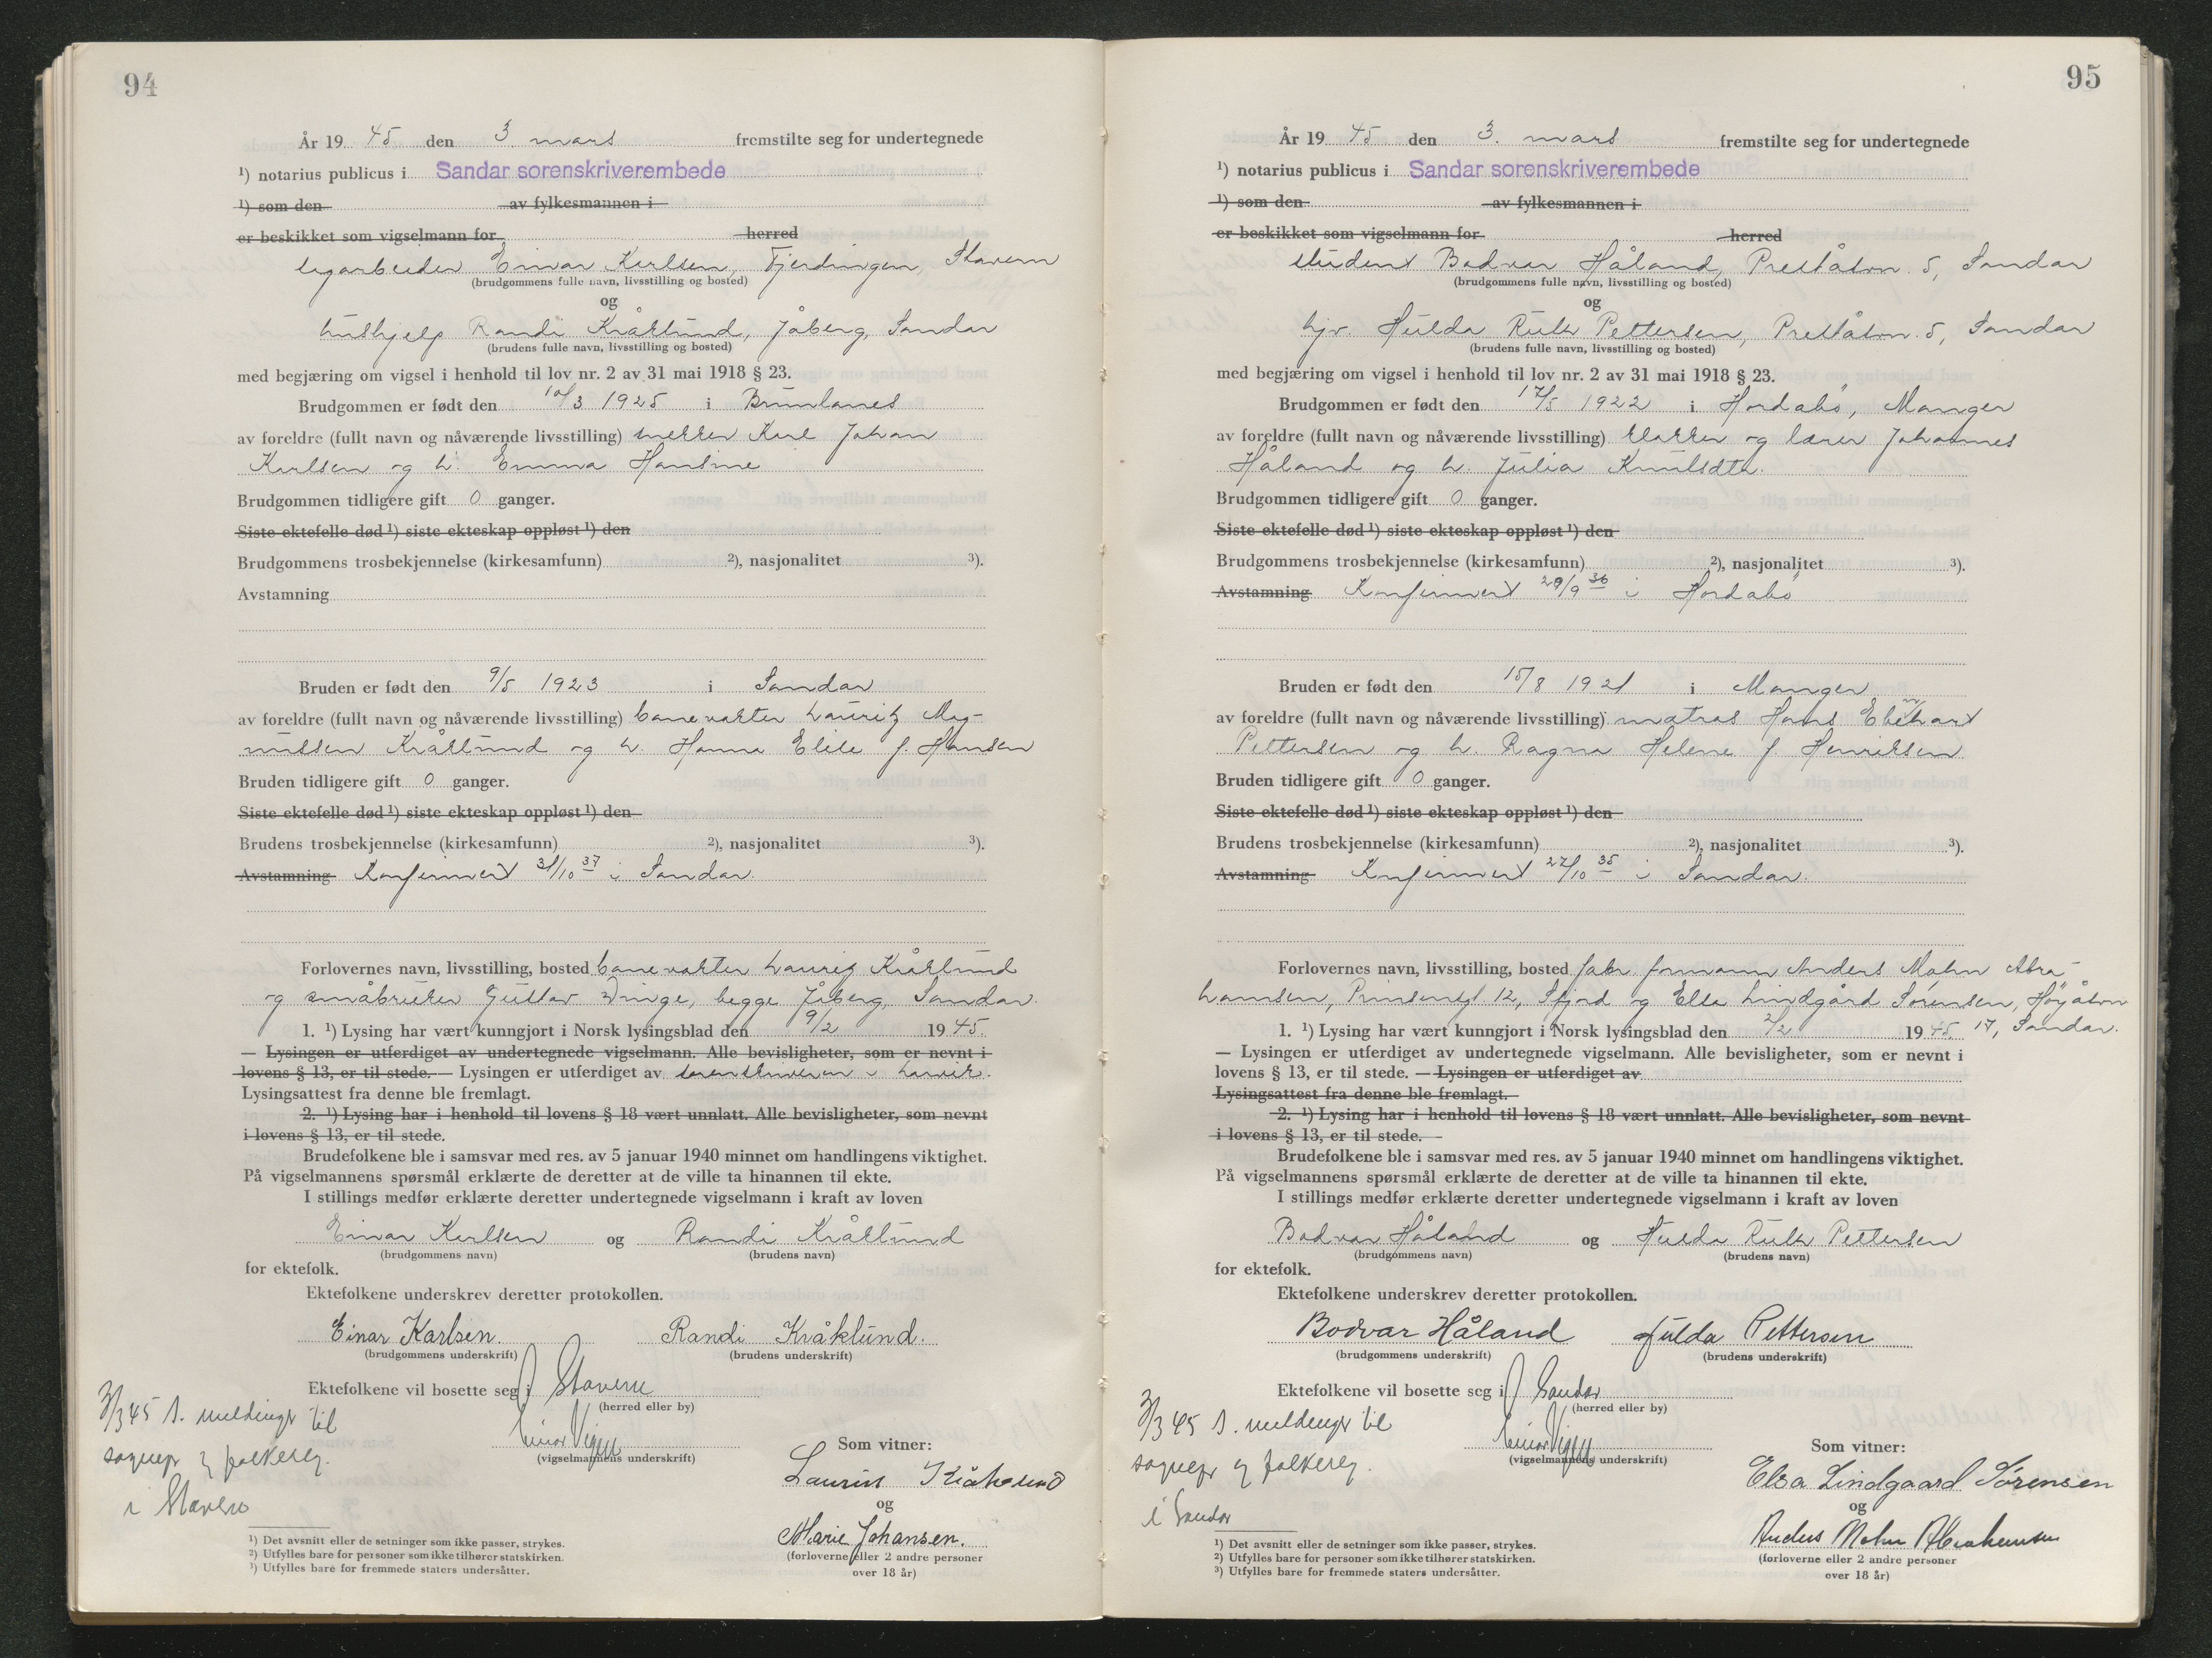 94
År 19 45 den 3. mars fremstilte seg for undertegnede
¹) notarius publicus i Sandar sorenskriverembede
¹) som den av fylkesmannen i
er beskikket som vigselmann for herred
Einar Karlsen, Fjerdingen, Stavern
(brudgommens fulle navn, livsstilling og bosted)
og
hushjelp Randi Kråklund, Jåberg, Sandar
(brudens fulle navn, livsstilling og bosted)
med begjæring om vigsel i henhold til lov nr. 2 av 31 mai 1918 § 23.
Brudgommen er født den 10/3 1925 i Brunlanes
av foreldre (fullt navn og nåværende livsstilling) snekker Karl Johan
Karlsen og h. Emma Hansine
Brudgommen tidligere gift 0 ganger.
Siste ektefelle død ¹) siste ekteskap oppløst ¹) den
Brudgommens trosbekjennelse (kirkesamfunn) ²), nasjonalitet ³).
Avstamning
Bruden er født den 9/5 1923 i Sandar
av foreldre (fullt navn og nåværende livsstilling) banevakter Lauritz Mag-
nussen Kråklund og h. Hanna Elise f. Hansen
Bruden tidligere gift 0 ganger.
Siste ektefelle død ¹) siste ekteskap oppløst ¹) den
Brudens trosbekjennelse (kirkesamfunn) ²), nasjonalitet ³).
Avstamning Konfirmert 31/10 37 i Sandar
Forlovernes navn, livsstilling, bosted banevakter Lauritz Kråklund
og småbruker Gustav Vinge, begge Jåberg, Sandar.
1. ¹) Lysing har vært kunngjort i Norsk lysingsblad den 9/2 19 45.
— Lysingen er utferdiget av undertegnede vigselmann. Alle bevisligheter, som er nevnt i
lovens § 13, er til stede. — Lysingen er utferdiget av sorenskriveren i Larvik.
Lysingsattest fra denne ble fremlagt.
2. ¹) Lysing har i henhold til lovens § 18 vært unnlatt. Alle bevisligheter, som nevnt
i lovens § 13, er til stede.
Brudefolkene ble i samsvar med res. av 5 januar 1940 minnet om handlingens viktighet.
På vigselmannens spørsmål erklærte de deretter at de ville ta hinannen til ekte.
I stillings medfør erklærte deretter undertegnede vigselmann i kraft av loven
Einar Karlsen og Randi Kråklund
(brudgommens navn) (brudens navn)
for ektefolk.
Ektefolkene underskrev deretter protokollen.
Einar Karlsen. Randi Kråklund.
(brudgommens underskrift) (brudens underskrift)
Ektefolkene vil bosette seg i Stavern
(herred eller by)
3/3 45 s. meldinger til
sognepr og folkereg.
i Stavern
Einar Vigen
(vigselmannens underskrift)
Som vitner:
Lauritz Kråklund
og
Marie Johansen.
(forloverne eller 2 andre personer
over 18 år)
¹) Det avsnitt eller de setninger som ikke passer, strykes.
²) Utfylles bare for personer som ikke tilhører statskirken.
³) Utfylles bare for fremmede staters undersåtter.
95
År 19 45 den 3. mars fremstilte seg for undertegnede
¹) notarius publicus i Sandar sorenskriverembede
¹) som den av fylkesmannen i
er beskikket som vigselmann for herred
student Bodvar Håland, Preståsvn. 5, Sandar
(brudgommens fulle navn, livsstilling og bosted)
og
hjv. Hulda Ruth Pettersen, Preståsvn. 5, Sandar
(brudens fulle navn, livsstilling og bosted)
med begjæring om vigsel i henhold til lov nr. 2 av 31 mai 1918 § 23.
Brudgommen er født den 17/5 1922 i Hordabø, Manger
av foreldre (fullt navn og nåværende livsstilling) klokker og lærer Johannes
Håland og h. Julia Knutsdtr.
Brudgommen tidligere gift 0 ganger.
Siste ektefelle død ¹) siste ekteskap oppløst ¹) den
Brudgommens trosbekjennelse (kirkesamfunn) ²), nasjonalitet ³).
Avstamning Konfirmert 29/9 36 i Hordabø
Bruden er født den 15/8 1921 i Manger
av foreldre (fullt navn og nåværende livsstilling) matros Hans Ebehart
Pettersen og h. Ragna Helene f. Henriksen
Bruden tidligere gift 0 ganger.
Siste ektefelle død ¹) siste ekteskap oppløst ¹) den
Brudens trosbekjennelse (kirkesamfunn) ²), nasjonalitet ³).
Avstamning Konfirmert 27/10 35 i Sandar.
Forlovernes navn, livsstilling, bosted fabr. formann Anders Mohn Abra-
hamsen, Prinsensgt 12, Sfjord og Elsa Lindgård Sørensen, Høyåsvn
1. ¹) Lysing har vært kunngjort i Norsk lysingsblad den 2/2 19 45. 17, Sandar.
— Lysingen er utferdiget av undertegnede vigselmann. Alle bevisligheter, som er nevnt i
lovens § 13, er til stede. — Lysingen er utferdiget av
Lysingsattest fra denne ble fremlagt.
2. ¹) Lysing har i henhold til lovens § 18 vært unnlatt. Alle bevisligheter, som nevnt
i lovens § 13, er til stede. —
Brudefolkene ble i samsvar med res. av 5 januar 1940 minnet om handlingens viktighet.
På vigselmannens spørsmål erklærte de deretter at de ville ta hinannen til ekte.
I stillings medfør erklærte deretter undertegnede vigselmann i kraft av loven
Bodvar Håland og Hulda Ruth Pettersen
(brudgommens navn) (brudens navn)
for ektefolk.
Ektefolkene underskrev deretter protokollen.
Bodvar Håland Hulda Pettersen
(brudgommens underskrift) (brudens underskrift)
Ektefolkene vil bosette seg i Sandar
(herred eller by)
3/3 45 s. meldinger til
sognepr og folkereg.
i Sandar
Einar Vigen
(vigselmannens underskrift)
Som vitner:
Elsa Lindgaard Sørensen
og
Anders Mohn Abrahamsen
(forloverne eller 2 andre personer
over 18 år)
¹) Det avsnitt eller de setninger som ikke passer, strykes.
²) Utfylles bare for personer som ikke tilhører statskirken.
³) Utfylles bare for fremmede staters undersåtter.